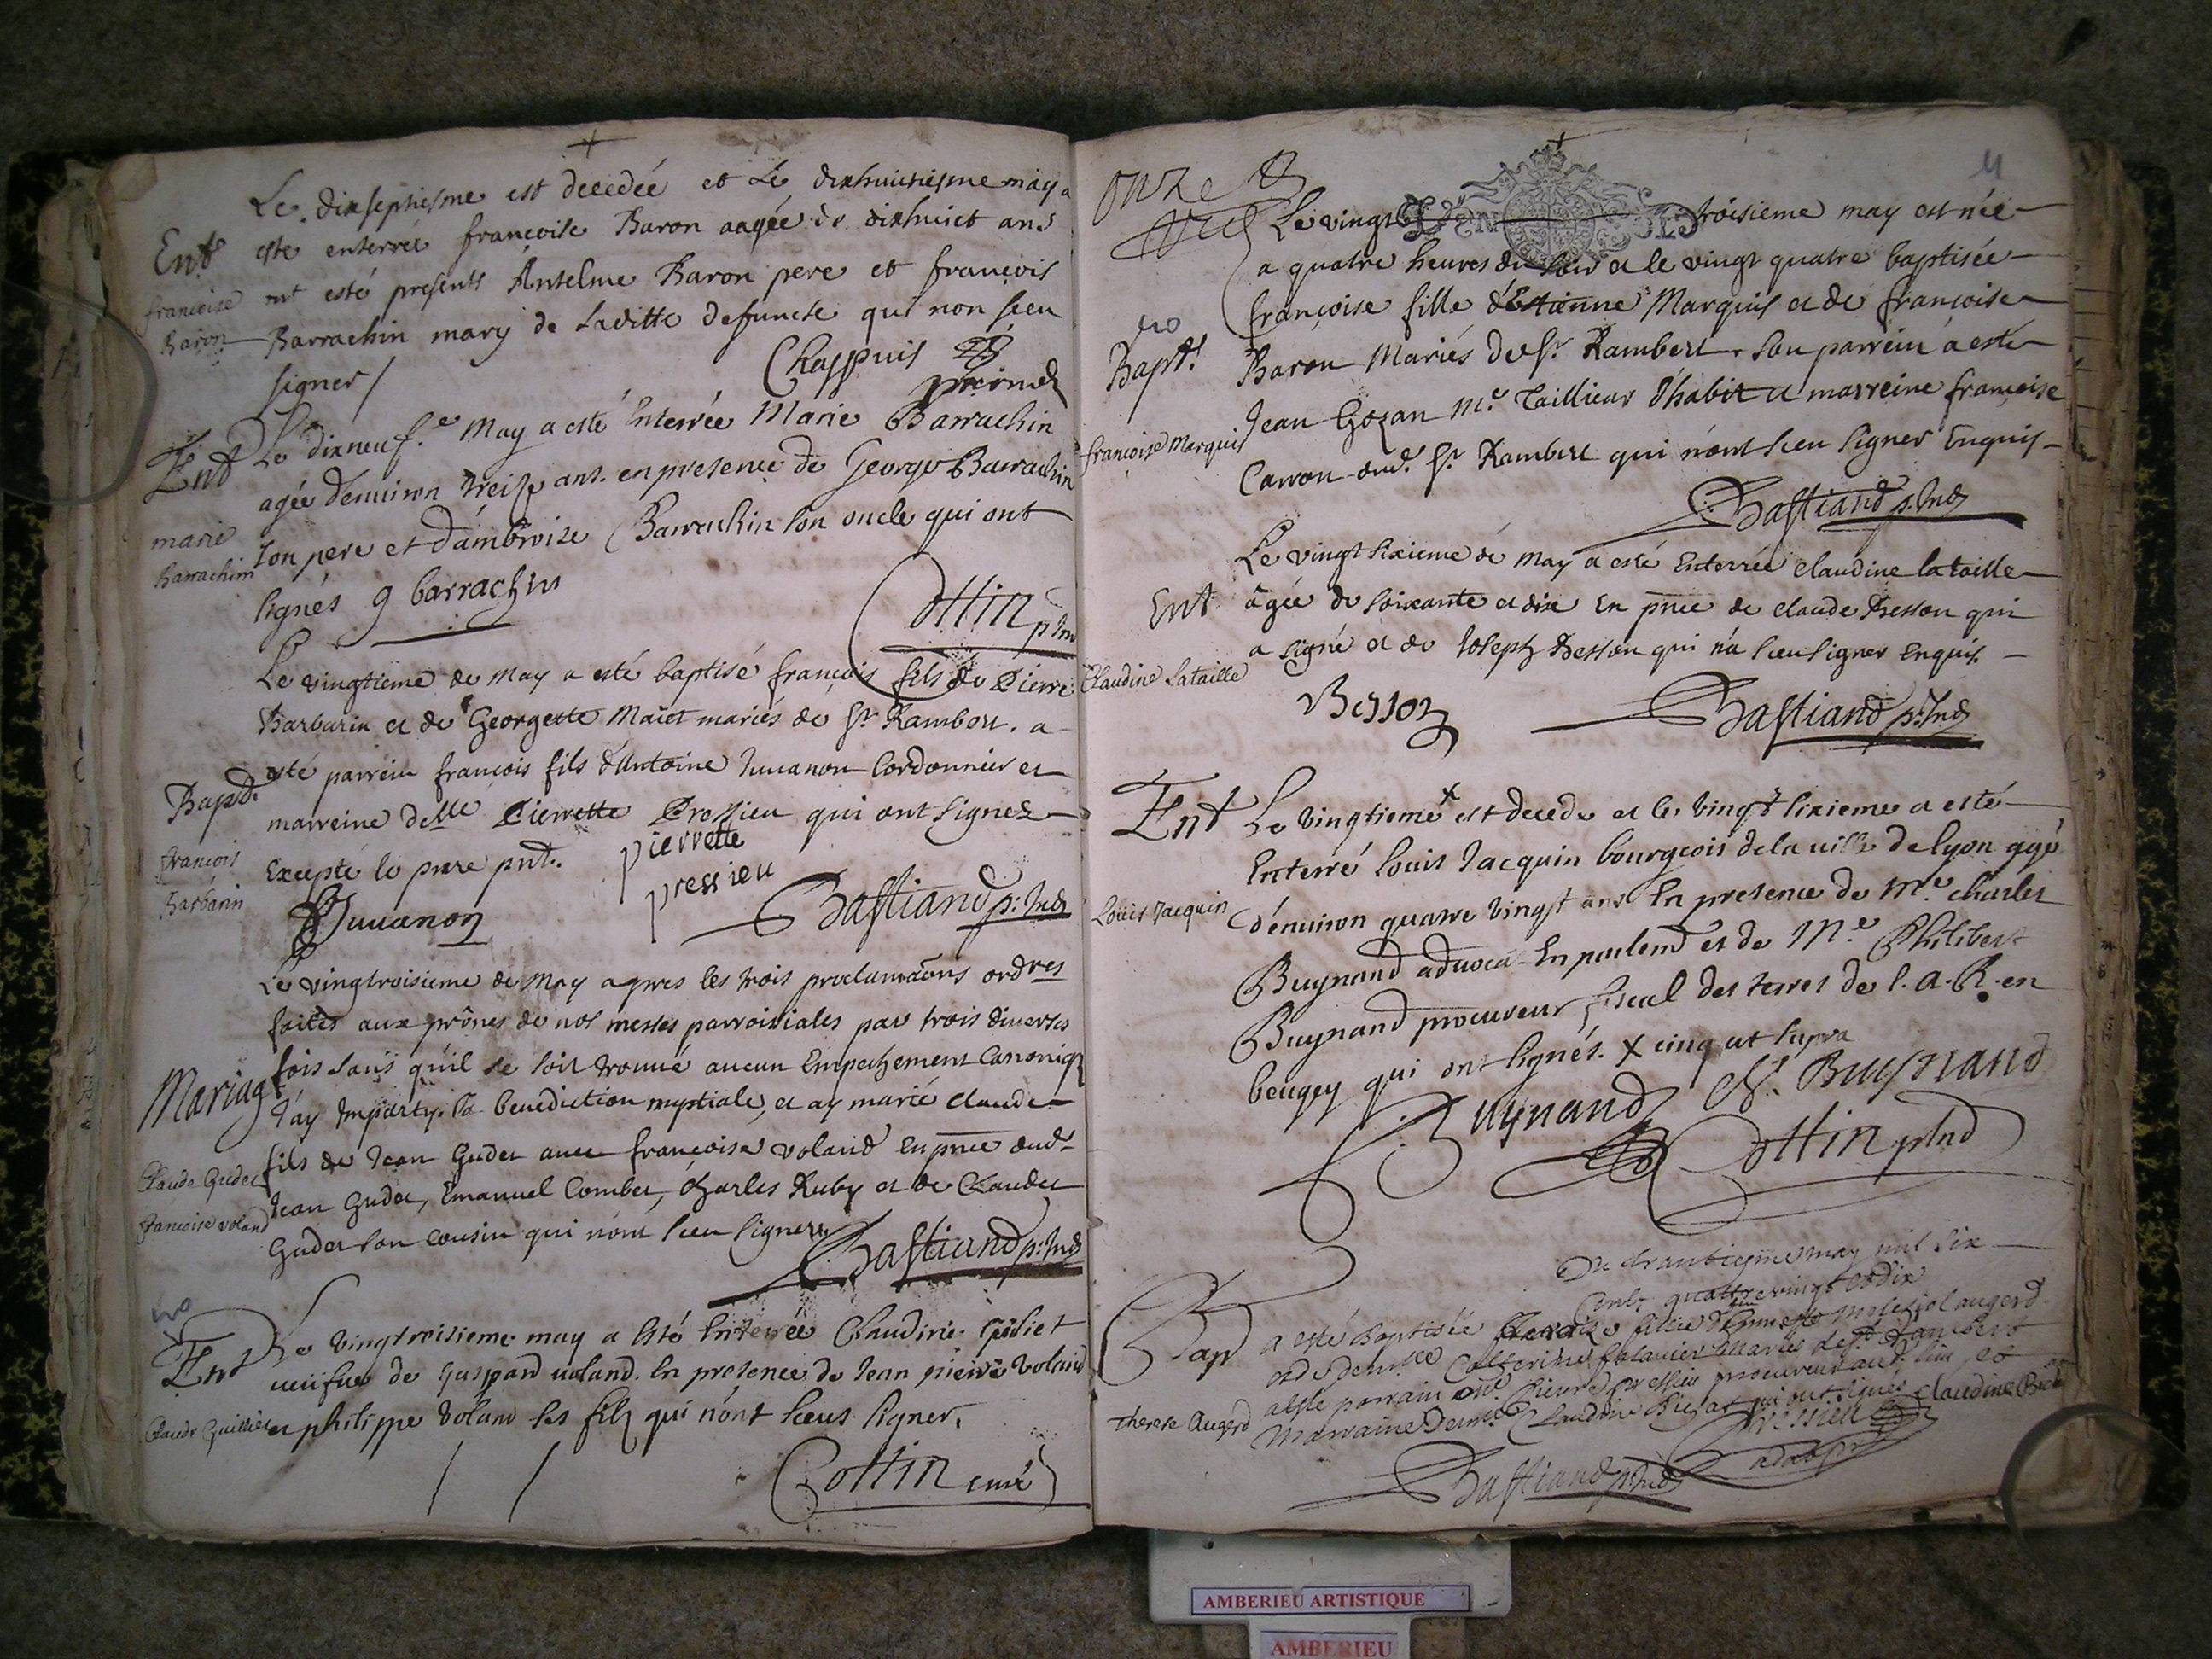 Le dixseptiesme est decedée et Le dixhuictiesme may a
Ent esté enterrée francoise Baron aagée de dixhuict ans
francoise Baron
ont esté presents Antelme Baron pere et francois
Barrachin mary de Laditte defuncte qui non sceu
signer /
Chappuis
Ent
Le dixneuf.e May a esté Enterrée Marie Barrachin
agée d'enuiron treize ans. en presence de George Barrachin
marie Barrachin
son pere et d'ambroise Barrachin son oncle qui ont
signés g barrachin
Cottin
Le vingtieme de May a esté baptisé francois fils de Pierre
Barbarin et de Georgette Maiet mariés de St Rambert. a
Bapt.
esté parrein francois fils d'Antoine Juuanon Cordonnier et
marreine delle Pierrette Pressieu qui ont signez
francois Barbarin
Excepté le pere pnt.
pierrette
pressieu
Juuanon
Bastiand p: Ind
Le vingtroisieme de May apres les trois proclamaõns ordres
faites aux prônes de nos messes parroissiales par trois diuerses
fois sans qu'il se soit trouué aucun Empechement Canoniq
Mariage
J'ay Imparty la benediction nuptiale, et ay marié claude
fils de Jean Guder auec francoise voland en pnce dud.
Claude Guder
francoise voland
Jean Guder, Emanuel Combet, charles Ruby et de Claude
Guder son cousin qui n'ont sceu signer
Bastiand p: Ind
Ent
Le vingtroisieme may a esté Enterrée Claudine
veufue de Gaspard voland. En presence de Jean pierre Voland
Claude Guillet
et philippe Voland ses filz qui n'ont sceus signer.
Cottin curé
onze
11
Le vingt troisieme may est née
a quatre heures du soir et le vingt quatre baptisée
françoise fille d'Estienne Marquis et de francoise
Bapt.
Baron Mariés de St. Rambert. Son parrein a esté
Jean Gozan Me. Taillieur d'habit et marreine francoise
francoise Marquis
Carron dud. St. Rambert qui n'ont sceu signer Enquis
Bastiand p. Ind
Le vingt sixieme de May a esté Enterrée claudine lataille
Ent
âgée de soixante et dix En pnce de claude Besson qui
a signé et de Joseph Besson qui n'a sceu signer Enquis.
Claudine Lataille
Besson
Bastiand p: Ind
Ent
Le vingtieme x est decede et le vingt sixieme a esté
Enterré Louis Jacquin bourgeois de la uille de lyon agé
Louis Jacquin
d'enuiron quatre vingt ans En presence de Me. charles
Buynand aduocat En parlemt et de Me. Philibert
Buynand procureur fiscal des terres de S. A. R. en
beugey qui ont signés. x cinq ut supra
Buynand
Buynand
Cottin
Du trantiesme may mil six
cents quattre vingt et dix
Bap
a esté Baptisée Tereze fillie
Augerd
et de demlle Catherine mariés de St Rambert
a esté parrain Pierre Pressieu procureur aud. lieu et
Therese Augerd
Marraine Demlle Claudine qui ont signés claudine
Pressieu
Bastiand p. Ind
AMBERIEU ARTISTIQUE
AMBERIEU